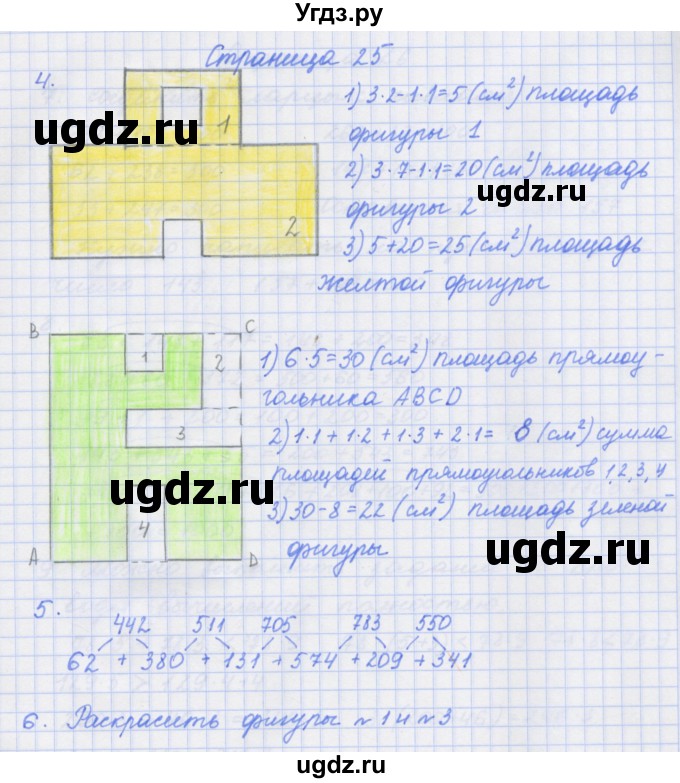 Угдз.ру
Страница 25
4.
1) 3·2-1·1=5 (см²) площадь
фигуры 1
2) 3·7-1·1=20 (см²) площадь
фигуры 2
3) 5+20=25 (см²) площадь
желтой фигуры
1
2
ugdz.ru
B
C
1
2
3
4
A
D
1) 6·5=30 (см²) площадь прямоу-
гольника ABCD
2) 1·1+1·2+1·3+2·1= 8 (см²) сумма
площадей прямоугольников 1,2,3,4
3) 30-8=22 (см²) площадь зеленой
фигуры
ugdz.ru
ugdz.ru
ugdz.ru
5.
442 511 705 783 550
62 + 380 + 131 + 574 + 209 + 341
6. Раскрасить фигуры №1 и №3
ugdz.ru
ugdz.ru
ugdz.ru